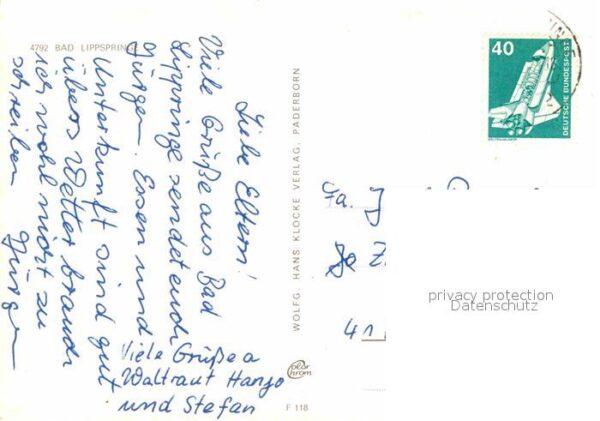 4792 BAD LIPPSPRINGE
Liebe Eltern!
Viele Grüße aus Bad
Lippringe sendet euch
Jürgen. Essen und
Unterkunft sind gut
übers Wetter brauch
ich wohl nicht zu
schreiben
Jürgen
Viele Grüße a
Waltraut Hanjo
und Stefan
WOLFG. HANS KLOCKE VERLAG, PADERBORN
polar
chrom
F 118
40
DEUTSCHE BUNDESPOST
Fa. J
Z
41
privacy protection
Datenschutz